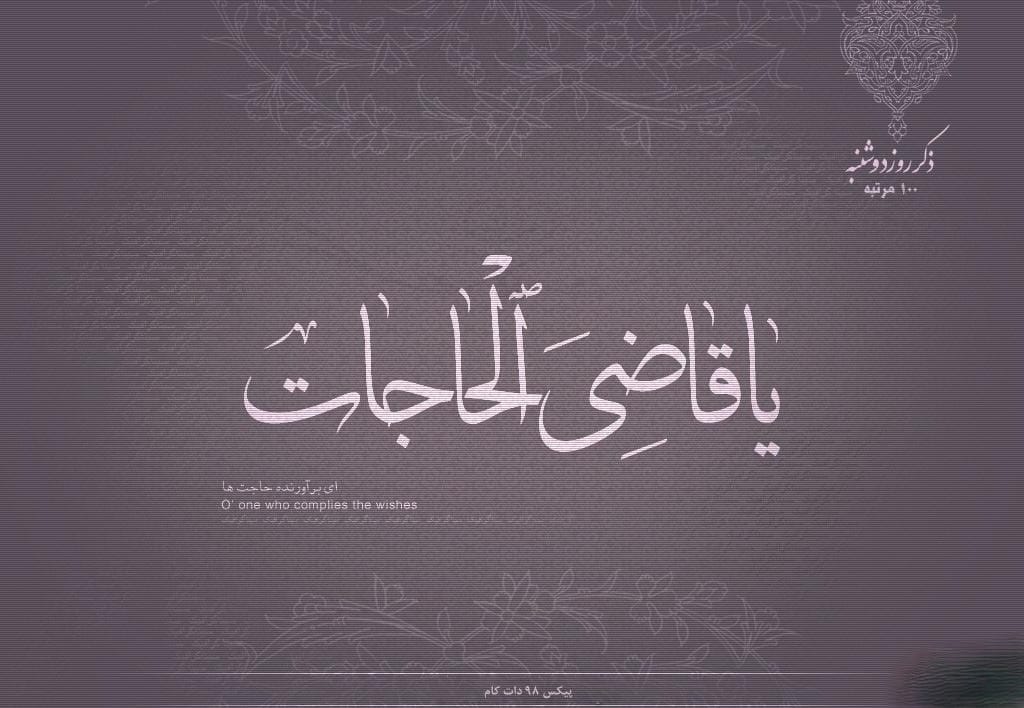 ذکر روز دوشنبه
۱۰۰ مرتبه
یا قاضِیَ ٱلْحاجات
ای برآورنده حاجت ها
O' one who complies the wishes
پیکس ۹۸ دات کام